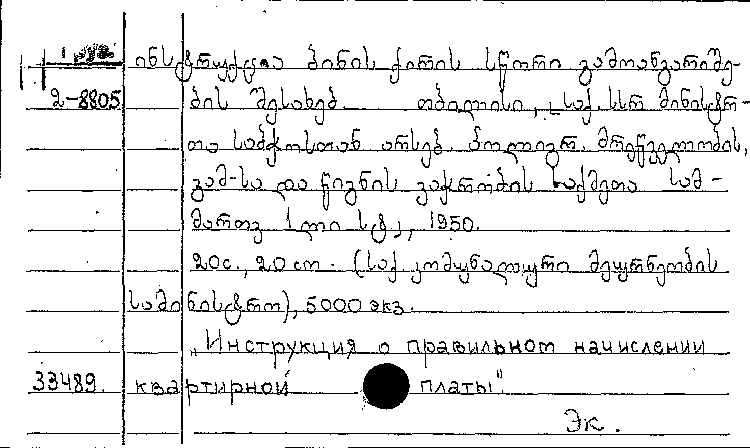 1 руз.
ინსტრუქცია ბინის ქირის სწორი გამოანგარიშე-
2-8805 ბის შესახებ. თბილისი, საქ. სსრ მინისტრ-
თა საბჭოსთან არსებ. პოლიგრ. მრეწველობის,
გამ-სა და წიგნის ვაჭრობის საქმეთა სამ-
მართვ 1 ლი სტ., 1950.
20с., 20 cm. (საქ კომუნალური მეურნეობის
სამინისტრო), 5000 экз.
„Инструкция о правильном начислении
33489. квартирной платы"
Эк.